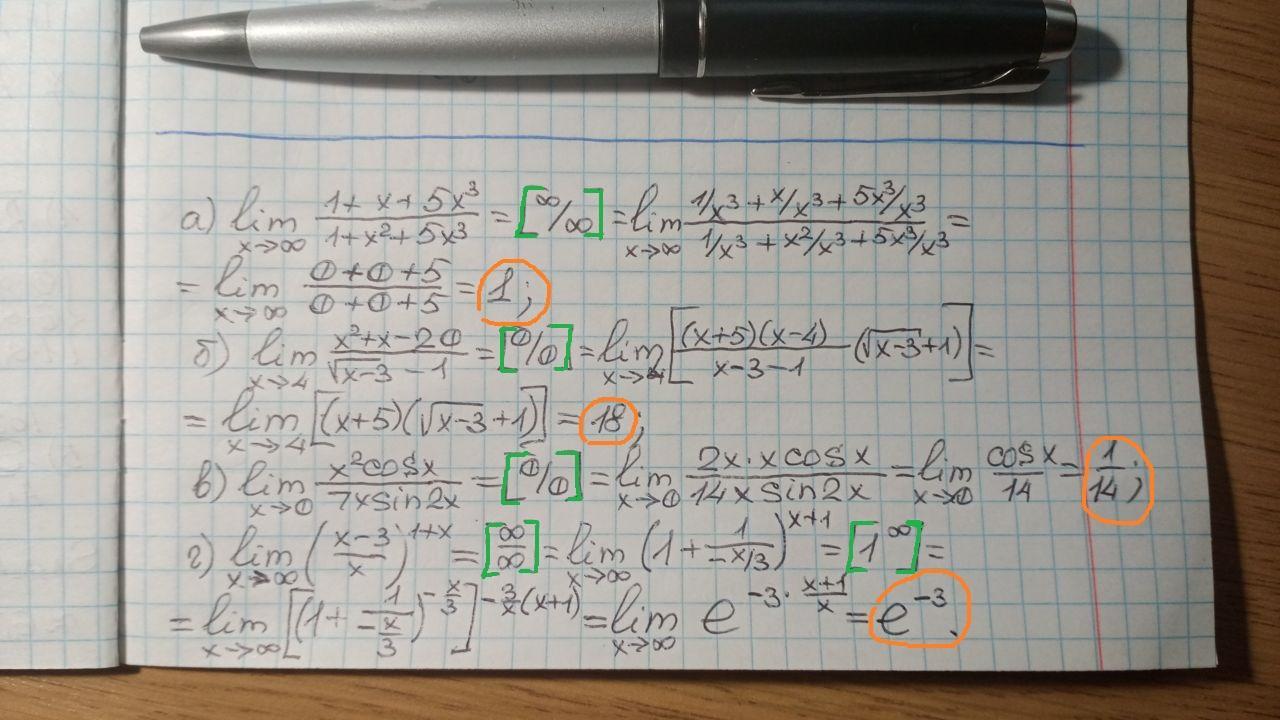 а) lim x→∞ (1 + x + 5x³)/(1 + x² + 5x³) = [∞/∞] = lim x→∞ (1/x³ + x/x³ + 5x³/x³)/(1/x³ + x²/x³ + 5x³/x³) =
= lim x→∞ (0 + 0 + 5)/(0 + 0 + 5) = 1;
б) lim x→4 (x² + x − 20)/(√(x−3) − 1) = [0/0] = lim x→4 [(x+5)(x−4)/(x−3−1) (√(x−3)+1)] =
= lim x→4 [(x+5)(√(x−3)+1)] = 18;
в) lim x→0 (x²cosx)/(7x sin2x) = [0/0] = lim x→0 (2x·x cosx)/(14x sin2x) = lim x→0 cosx/14 = 1/14;
г) lim x→∞ ((x−3)/x)^(1+x) = [∞/∞] = lim x→∞ (1 + 1/(−x/3))^(x+1) = [1^∞] =
= lim x→∞ [(1 + 1/(−x/3))^(−x/3)]^(−3/x(x+1)) = lim x→∞ e^(−3·(x+1)/x) = e^(−3).